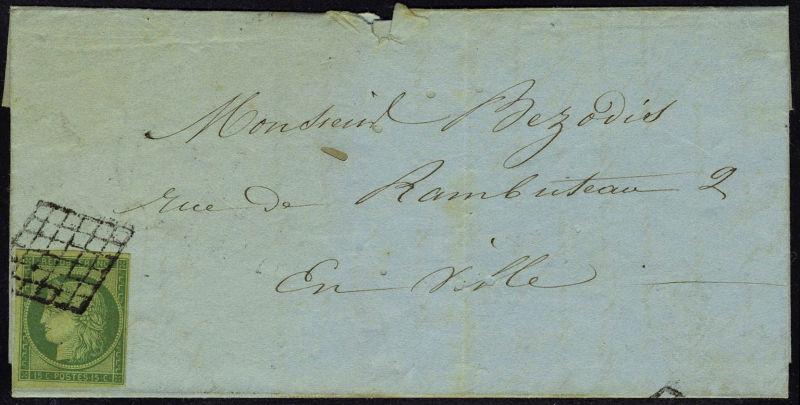 Monsieur Bezodis
rue de Rambuteau 2
En Ville
15 C POSTES 15 C